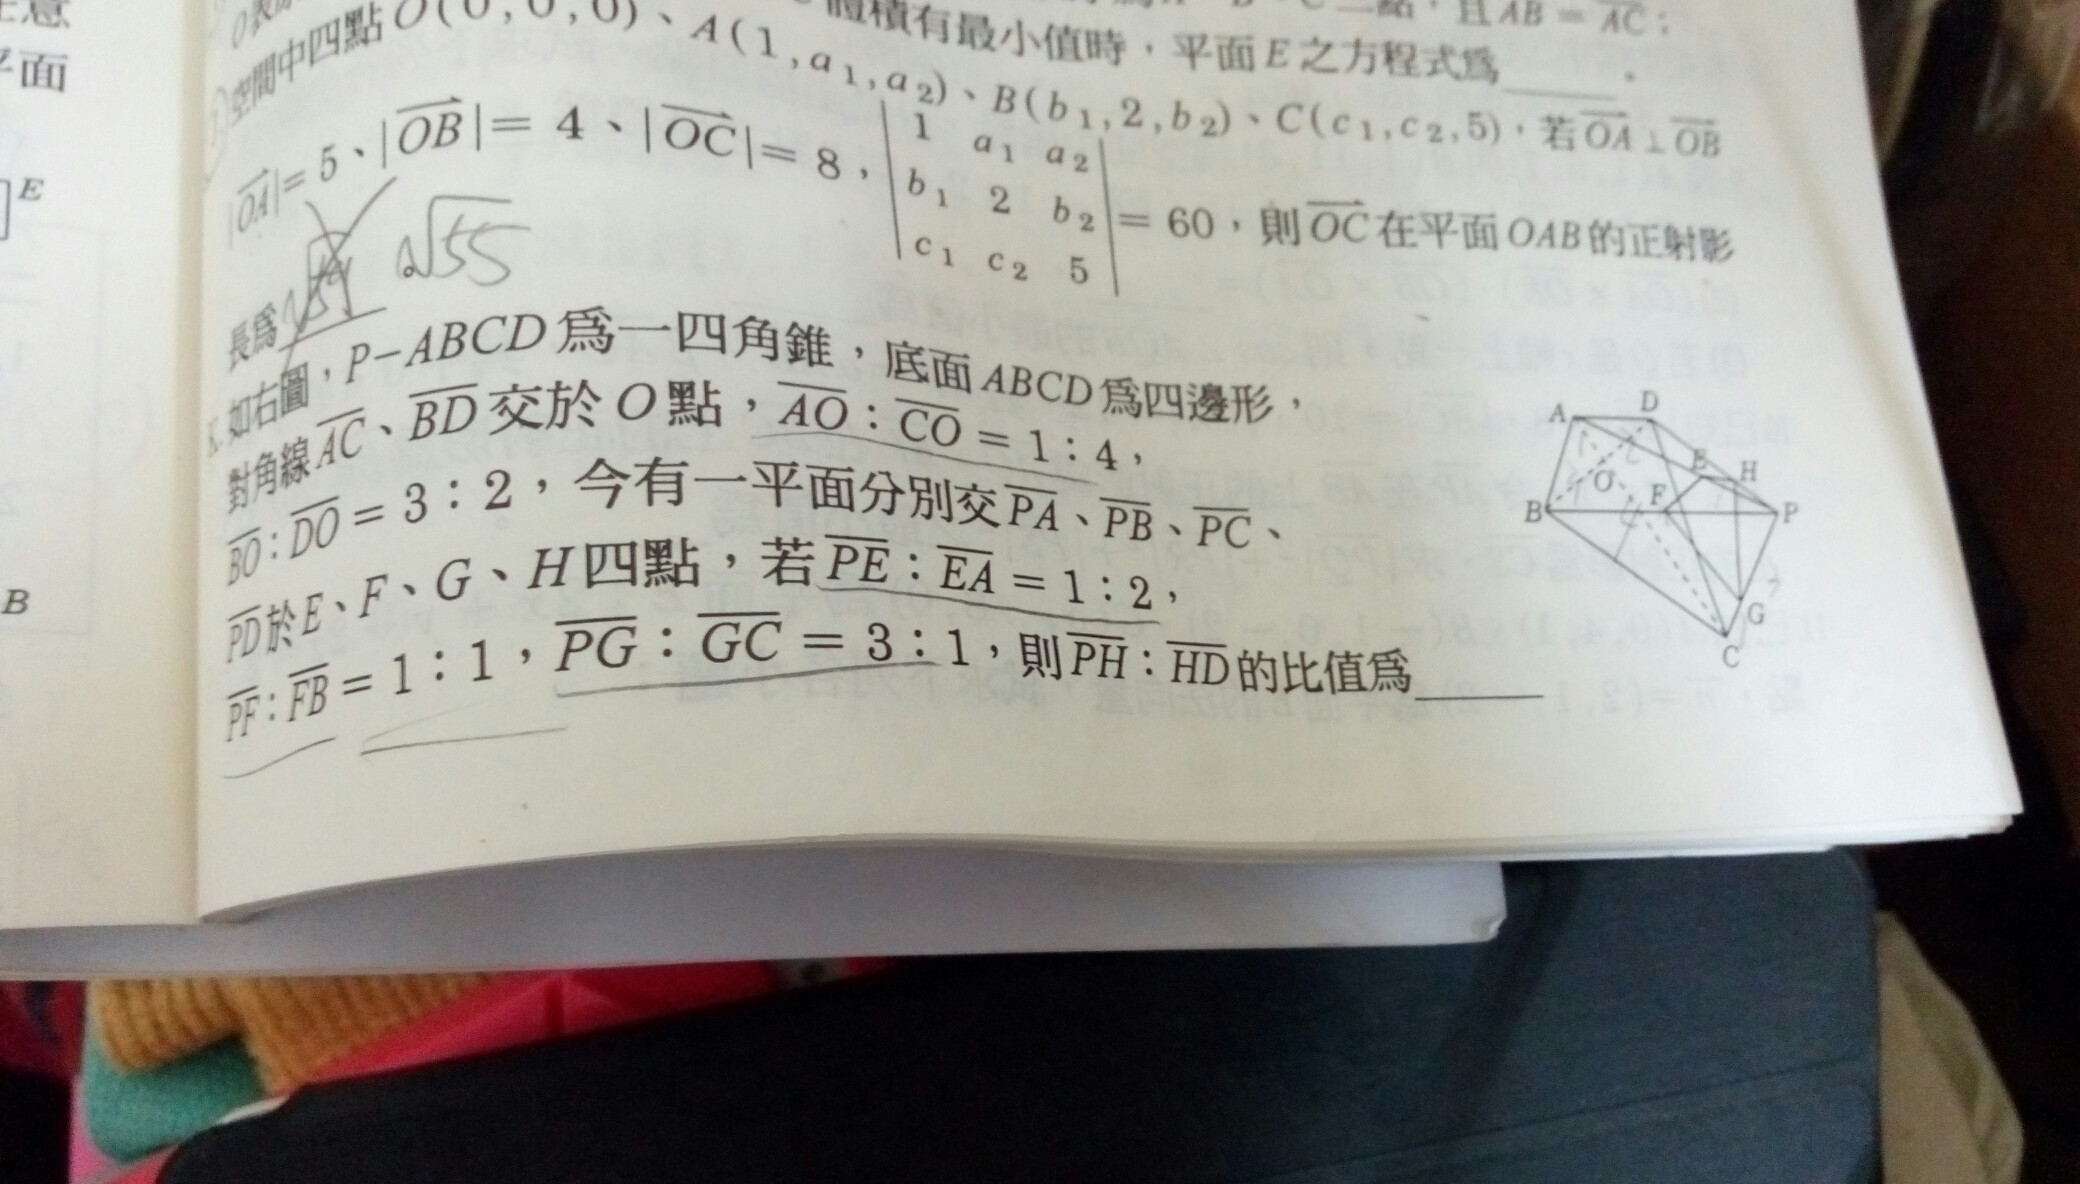 體積有最小值時,平面E之方程式爲______。
空間中四點O(0,0,0)、A(1,a₁,a₂)、B(b₁,2,b₂)、C(c₁,c₂,5),若OA⊥OB
|OA|=5、|OB|=4、|OC|=8,|1 a₁ a₂
b₁ 2 b₂
c₁ c₂ 5|=60,則OC在平面OAB的正射影
長爲______
√55
如右圖,P-ABCD爲一四角錐,底面ABCD爲四邊形,
對角線AC、BD交於O點,AO:CO=1:4,
BO:DO=3:2,今有一平面分別交PA、PB、PC、
PD於E、F、G、H四點,若PE:EA=1:2,
PF:FB=1:1,PG:GC=3:1,則PH:HD的比值爲______
A D
E H
O F
B P
G
C
意
平面
E
B